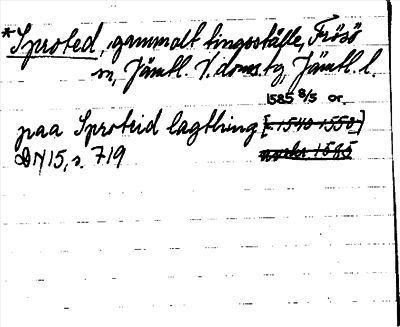 *Sproted, gammalt tingsställe, Frösö
sn, Jämtl. V. doms.tg Jämtl. l.
1585 8/5 or.
paa Sproteid lagthing [1540-1550]
DN 15, s. 719 avskr 1585